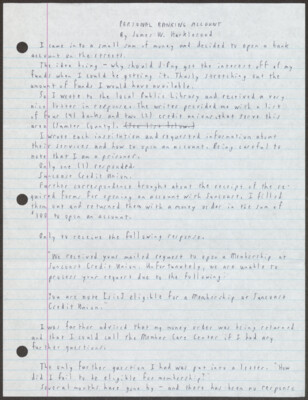 PERSONAL BANKING ACCOUNT
By James W. Hacklerood
I came into a small sum of money and decided to open a bank
account on the street.
The idea being - why should J-Pay get the interest off of my
funds when I could be getting it. Thusly stretching out the
amount of funds I would have available.
So I wrote to the local Public Library and received a very
nice letter in response. The writer provided me with a list
of four (4) banks and two (2) credit unions that serve this
area (Sumter County).
I wrote each institution and requested information about
their services and how to open an account. Being careful to
note that I am a prisoner.
Only one (1) responded.
Suncoast Credit Union.
Further correspondence brought about the receipt of the re-
quired forms for opening an account with Suncoast. I filled
them out and returned them with a money order in the sum of
to open an account.
Only to receive the following response.
"We received your mailed request to open a Membership at
Suncoast Credit Union. Unfortunately, we are unable to
process your request due to the following:
You are not [sic] eligible for a Membership at Suncoast
Credit Union."
I was further advised that my money order was being returned
and that I could call the Member Care Center if I had any
further questions.
The only further question I had was put into a letter. "How
did I fail to be eligible for membership?"
Several months have gone by - and there has been no response